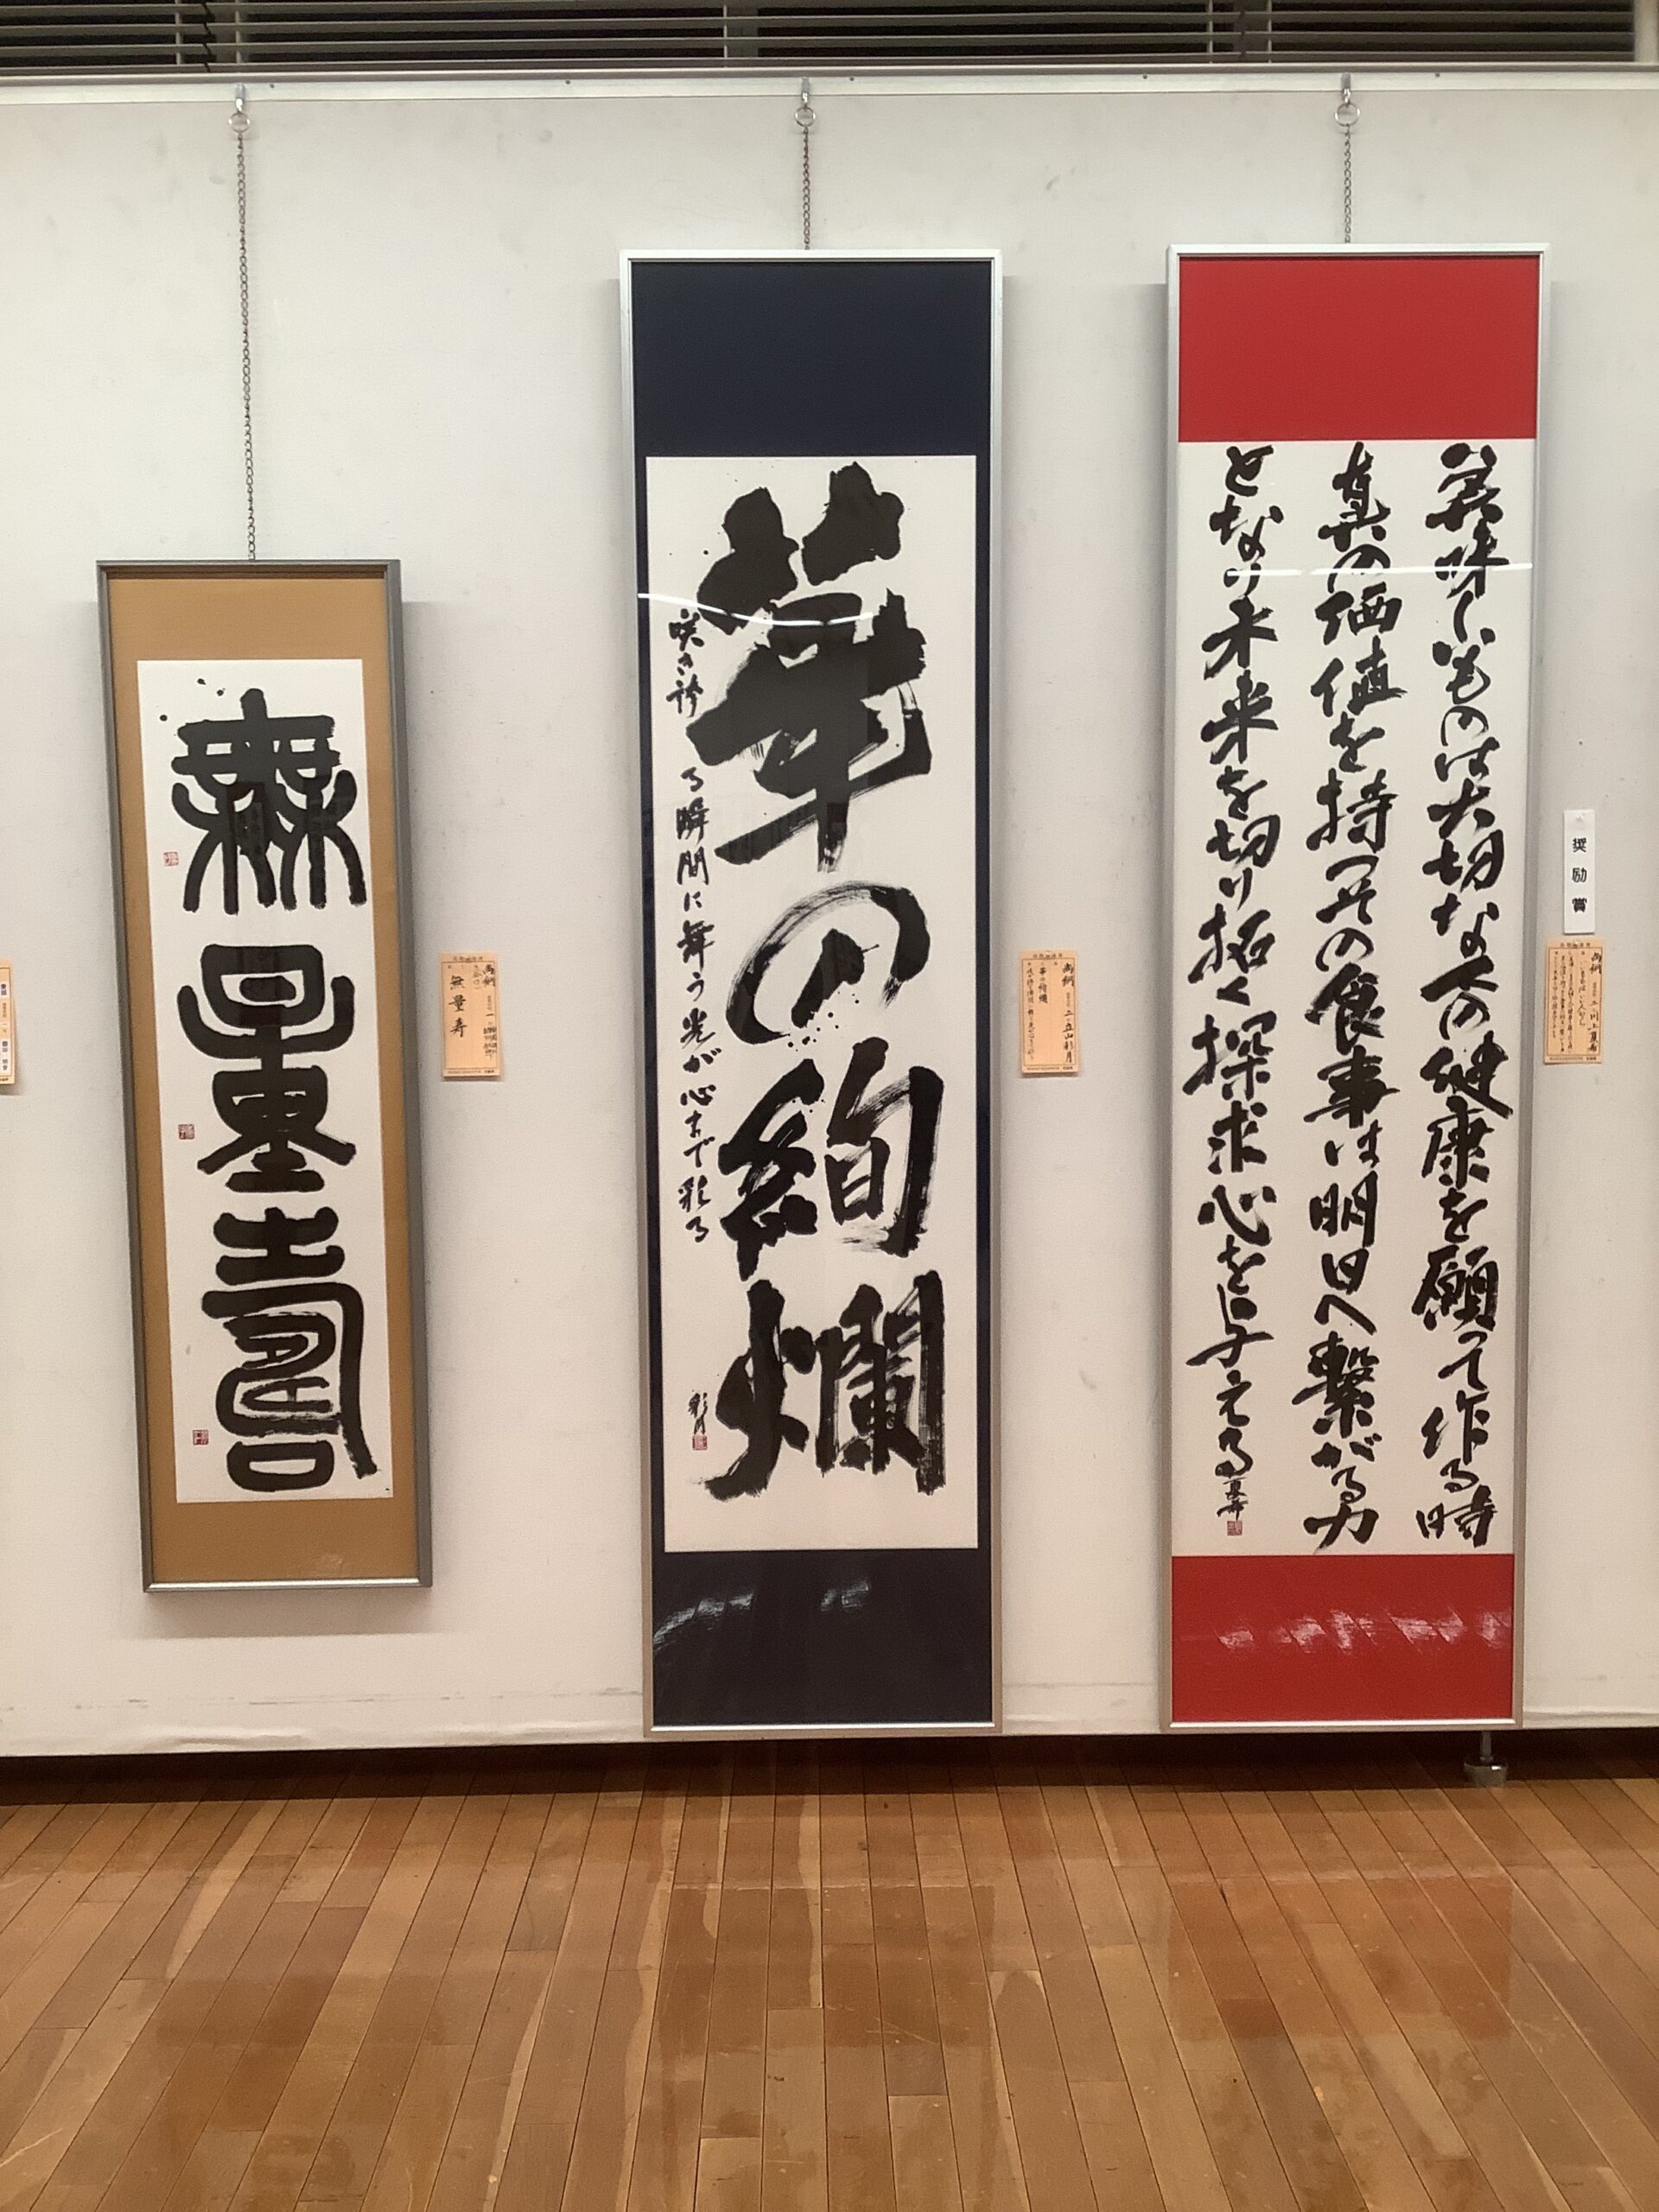 美味しいものは大切な人の健康を願って作る時
真の価値を持つその食事は明日へ繋がる力
となり未来を切り拓く探求心を与える
奨励賞
華の絢爛
咲き誇る瞬間に舞う光が心まで彩る
彩月
無量寿
無量寿